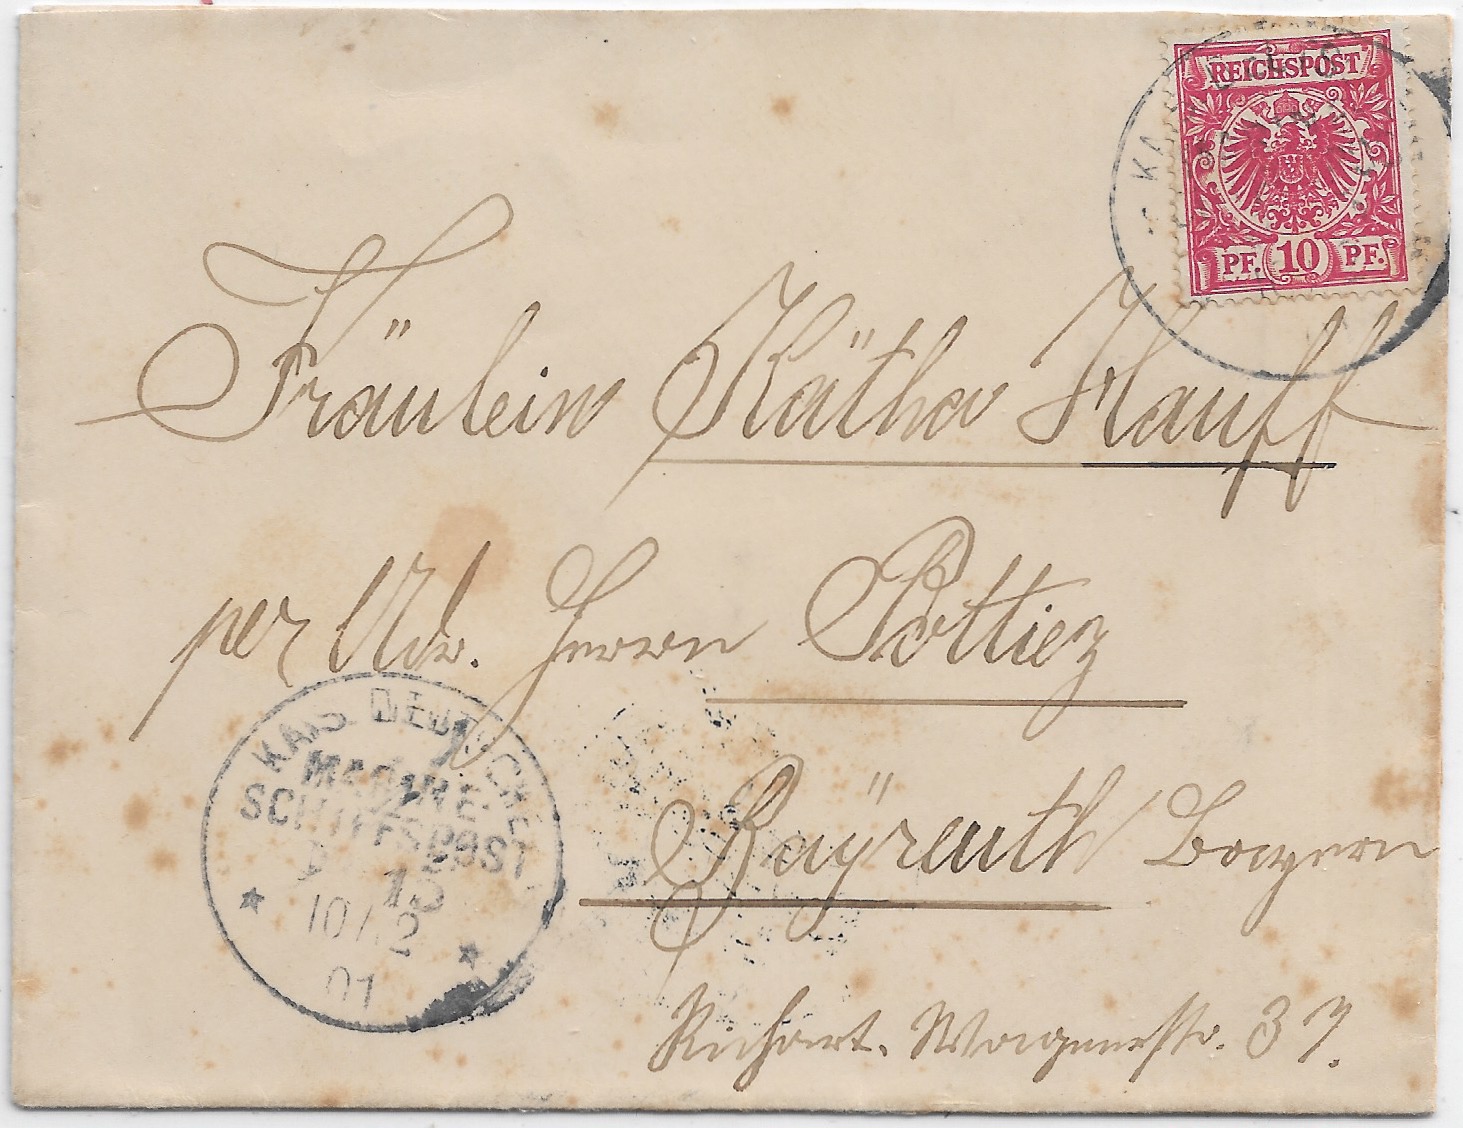 REICHSPOST
PF. 10 PF.
Fräulein Kätha Hauff
per Adr. Herrn Pottiez
Bayreuth Bayern
Richart. Wagnerstr. 37.
KAIS. DEUTSCHE
MARINE-
SCHIFFSPOST
No 15
10/12
01